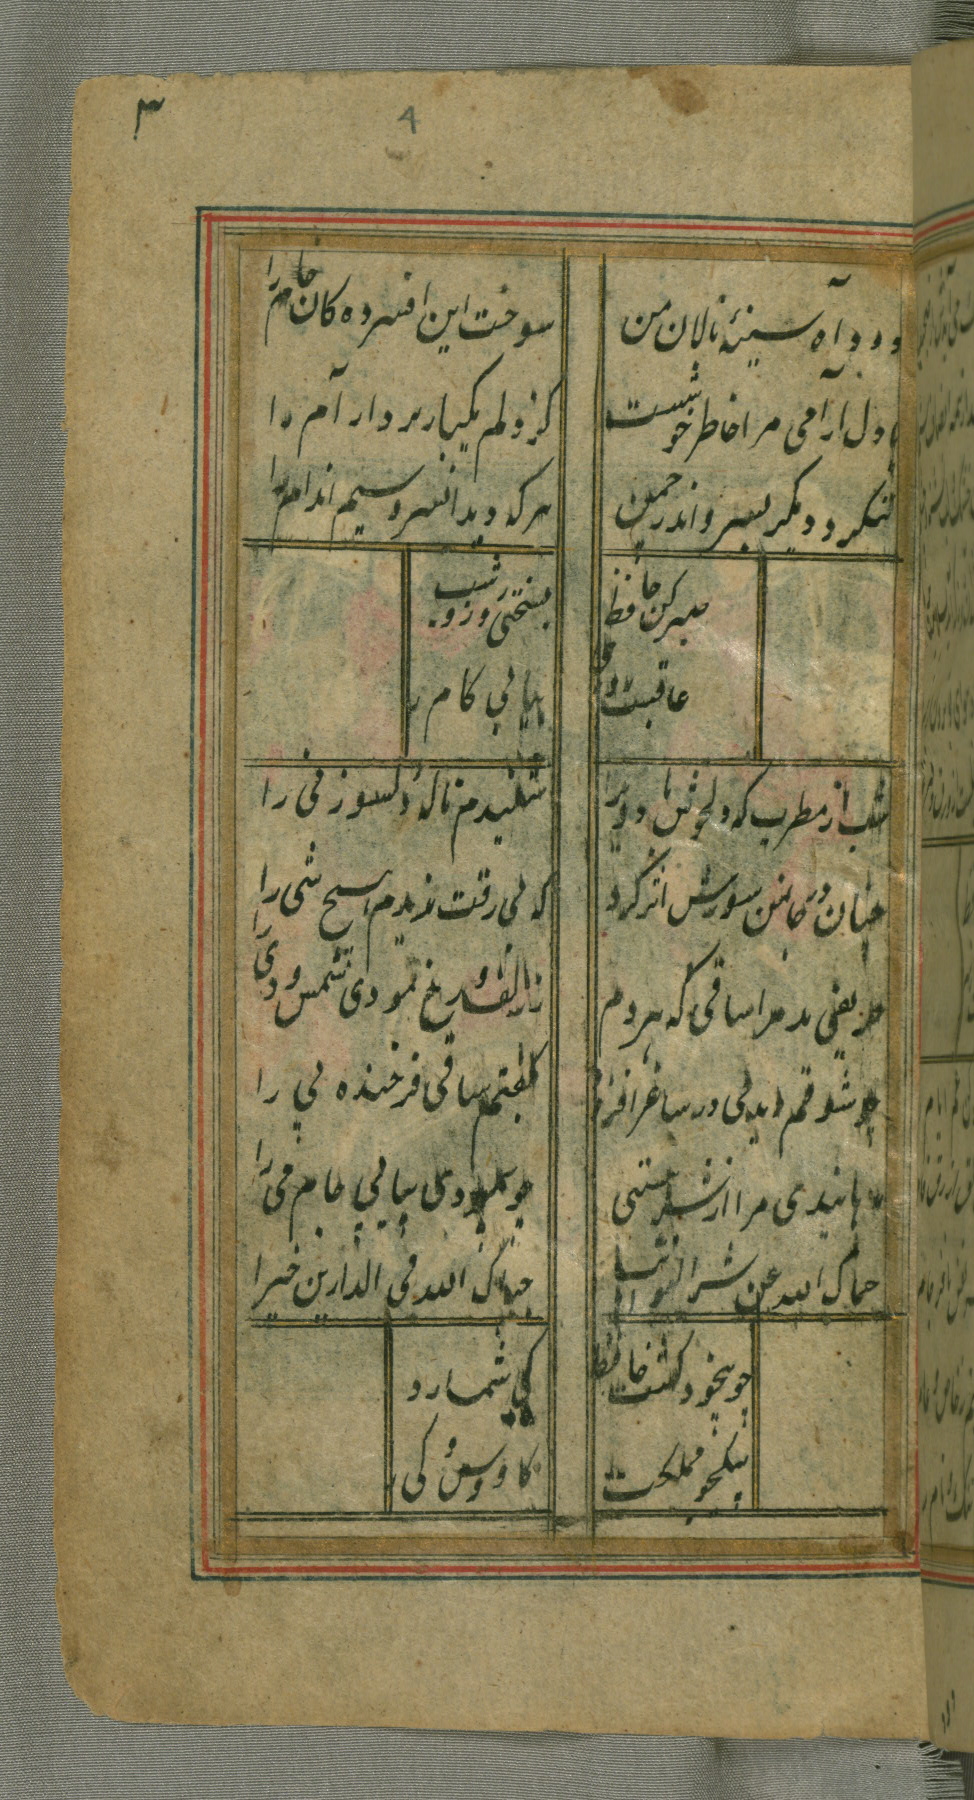 ۳
4
دود آه سینهٔ نالان من
سوخت این افسرده کان خام را
با دل آرامی مرا خاطر خوشست
کز دلم یکبار برد آرام را
ننگرد دیگر بسرو اندر چمن
هر که دید آن سرو سیم اندام را
صبر کن حافظ
بسختی روز و شب
عاقبت روزی
بیابی کام را
شب از مطرب که دل خوش باد ویرا
شنیدم ناله دلسوز نی را
چنان در جان من سوزش اثر کرد
که بی رقت ندیدم هیچ شی را
حریفی بد مرا ساقی که هر دم
ز زلف و رخ نمودی شمس و دی را
چو شوقم دید می در ساغر افزود
بگفتم ساقی فرخنده پی را
رهانیدی مرا از شر هستی
چو پیمودی پیاپی جام می را
حماک الله عن شر النوائب
جزاک الله فی الدارین خیرا
چو بیخود گشت حافظ
کی شمارد
بیکجو مملکت
کاووس و کی را